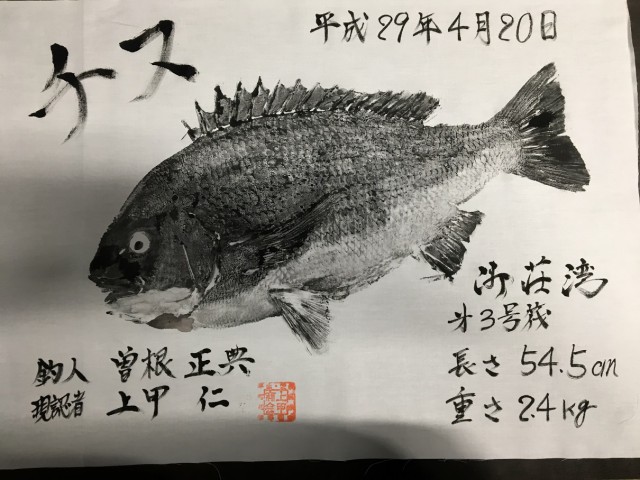 平成29年4月20日
ケス
御荘湾
オ3号筏
長さ 54.5cm
重さ 2.4kg
釣人 曽根 正典
現認者 上甲 仁